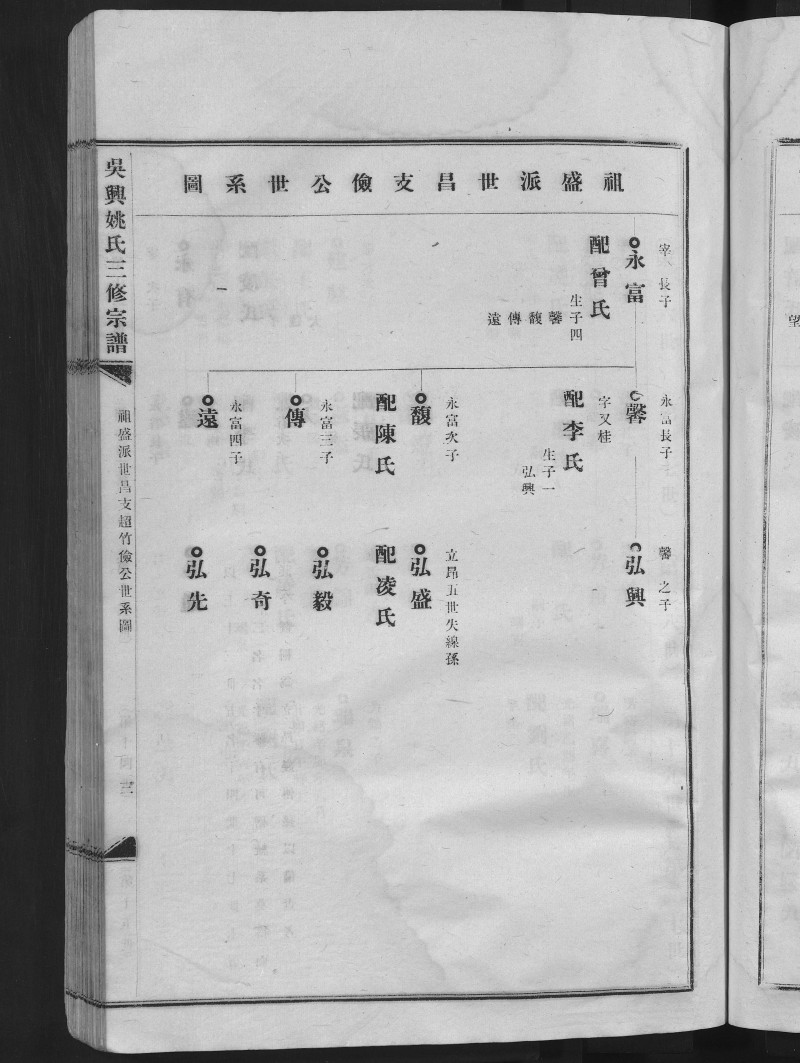 祖盛派世昌支儉公世系圖
宰 長子
永富
配曾氏
生子四
馨 馥 傳 遠
永富長子
馨
字又桂
配李氏
生子一
弘興
永富次子
馥
配陳氏
永富三子
傳
永富四子
遠
馨 之子
弘興
立昂五世失線孫
弘盛
配凌氏
弘毅
弘奇
弘先
吳興姚氏三修宗譜
祖盛派世昌支超竹儉公世系圖
望